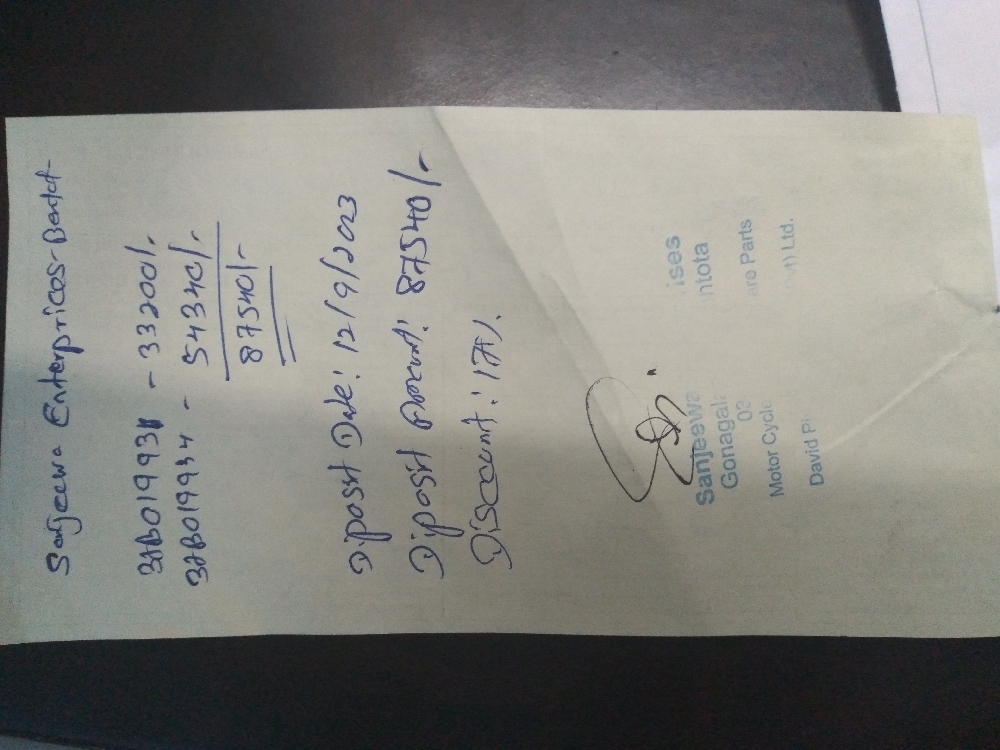 Sanjeewa Enterprices - Bentot
33200/-
54340/-
87540/-
Diposit Date: 12/9/2023
Diposit Amount: 87540/-
Discount: 17%.
Sanjeewa ises
Gonagala ntota
Motor Cycle are Parts
David Pi t) Ltd.